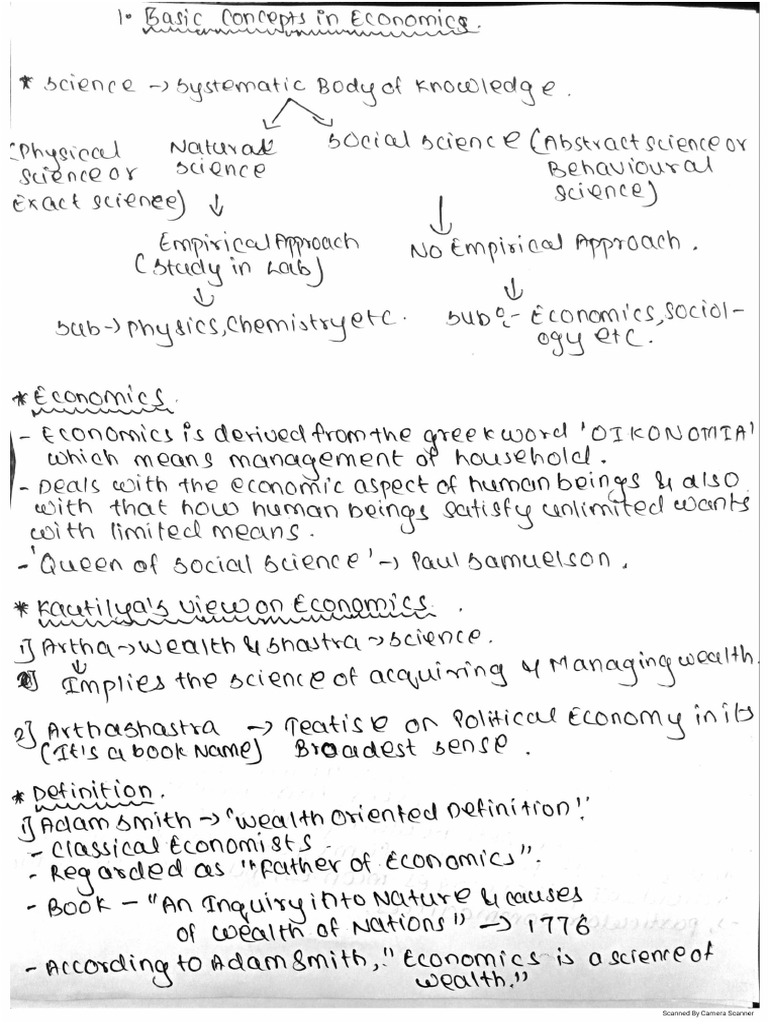 1. Basic Concepts in Economics.
* Science → Systematic Body of Knowledge.
(Physical Science or Exact Science)
Natural Science
Social Science (Abstract Science or Behavioural Science)
↓ ↓
Empirical Approach (Study in Lab)
No Empirical Approach.
↓ ↓
Sub → Physics, Chemistry etc.
Sub:- Economics, Sociol-
ogy etc.
* Economics.
- Economics is derived from the greek word 'OIKONOMIA'
which means management of household.
- Deals with the economic aspect of human beings & also
with that how human beings satisfy unlimited wants
with limited means.
- 'Queen of Social Science' → Paul Samuelson.
* Kautilya's view on Economics.
1) Artha → wealth & Shastra → Science.
↓
Implies the science of acquiring & Managing wealth.
2) Arthashastra → Teatise on Political Economy in its
(It's a book Name) Broadest sense.
* Definition.
1) Adam Smith → "Wealth Oriented Definition".
- Classical Economists.
- Regarded as "Father of Economics".
- Book - "An Inquiry into Nature & causes
of Wealth of Nations" → 1776
- According to Adam Smith, "Economics is a science of
wealth."
Scanned By Camera Scanner